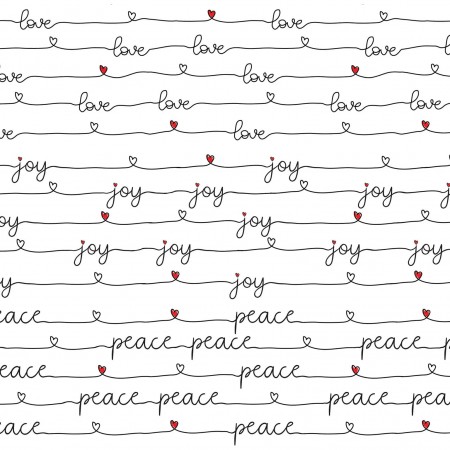 love love
love love love
love love
love love love love
love love
joy joy
joy joy joy joy
joy joy
joy joy joy joy
joy joy
peace peace
peace peace peace peace
peace peace
peace peace peace peace
peace peace